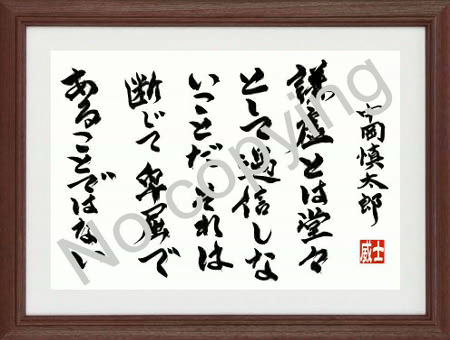 中岡慎太郎
謙虚とは堂々
として過信しな
いことだ それは
断じて卑屈で
あることではない
威士
No copying